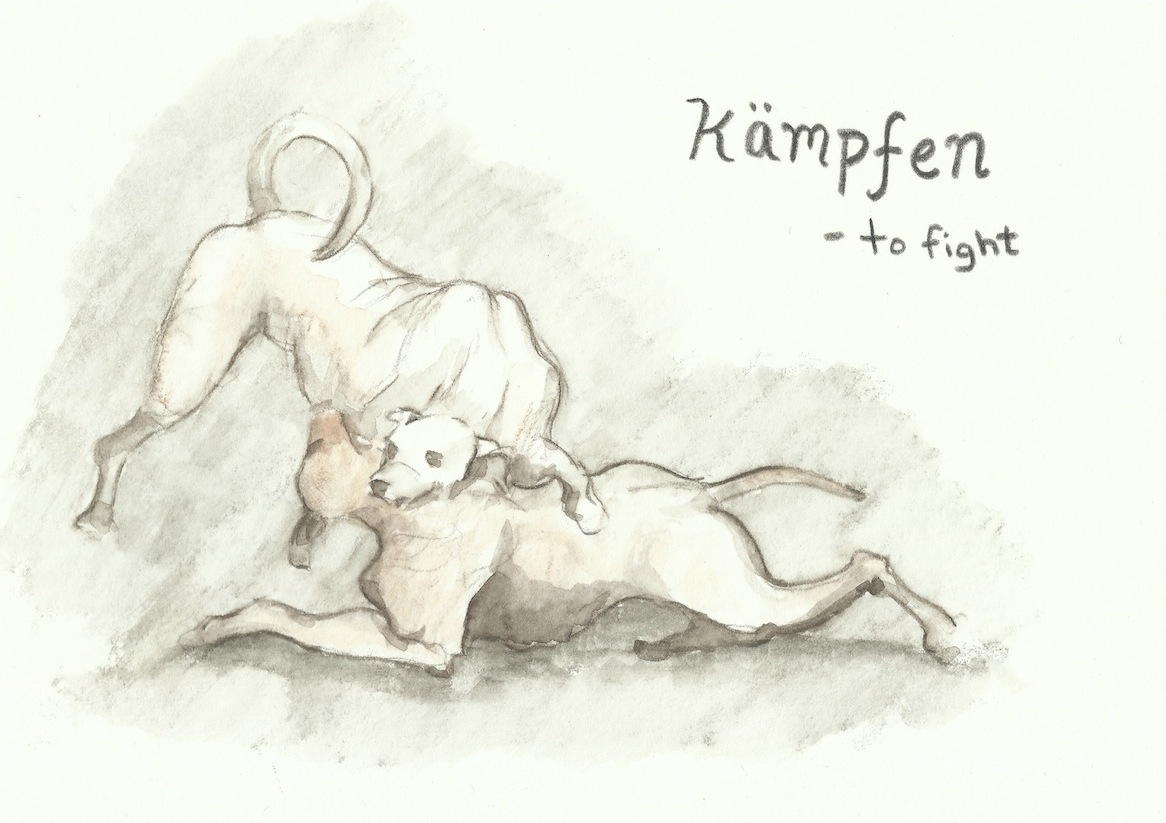 Kämpfen
- to fight